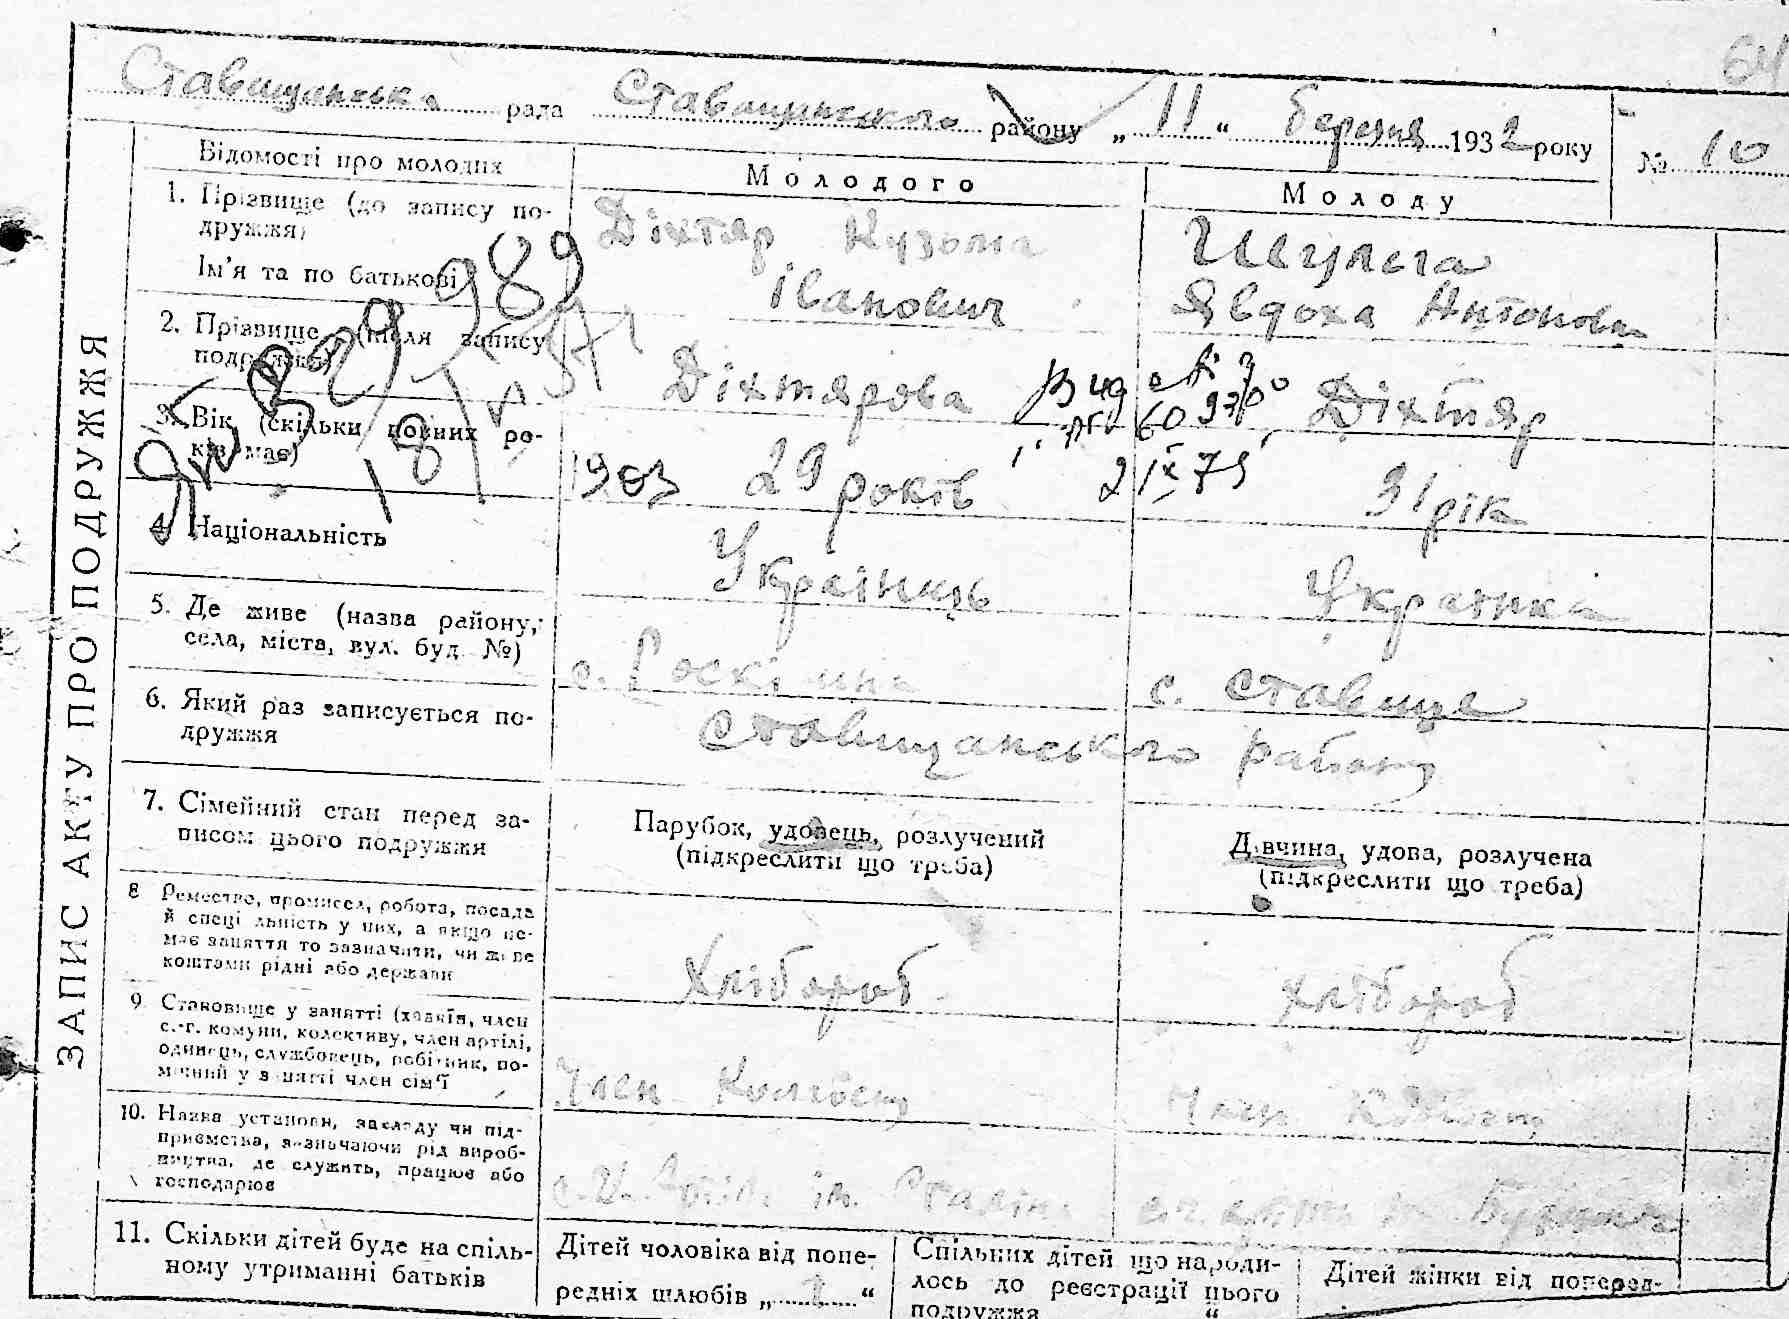 64
Ставищанська рада Ставищанського району „ 11 “ березня 1932 року № 10
ЗАПИС АКТУ ПРО ПОДРУЖЖЯ
Відомості про молодих
Молодого
Молоду
1. Прізвище (до запису по-
дружжя)
Ім'я та по батькові
Діхтяр Кузьма
Іванович
Шульга
Явдоха Антоновна
989
2. Прізвище (після запису
подружжя)
Діхтярова
Діхтяр
3. Вік (скільки повних ро-
ків має)
1903 29 років
2 IX 75
31 рік
4. Національність
Українець
Українка
5. Де живе (назва району,
села, міста, вул. буд. №)
с. Розкішна
с. Ставище
Ставищанського району
6. Який раз записується по-
дружжя
7. Сімейний стан перед за-
писом цього подружжя
Парубок, удовець, розлучений
(підкреслити що треба)
Дівчина, удова, розлучена
(підкреслити що треба)
8 Ремество, промисел, робота, посада
й спеціальність у них, а якщо не-
має заняття то зазначити, чи живе
коштами рідні або держави
Хлібороб
Хлібороб
9. Становище у занятті (хазяїн, член
с.-г. комуни, колективу, член артілі,
одинець, службовець, робітник, по-
мічний у занятті член сім'ї
Член Колгоспу
Член Колгоспу
10. Назва установи, закладу чи під-
приємства, зазначаючи рід вироб-
ництва, де служить, працює або
господарює
ім. Сталіна
11. Скільки дітей буде на спіль-
ному утриманні батьків
Дітей чоловіка від попе-
редніх шлюбів „ 1 “
Спільних дітей що народи-
лось до реєстрації цього
подружжя “
Дітей жінки від поперед-